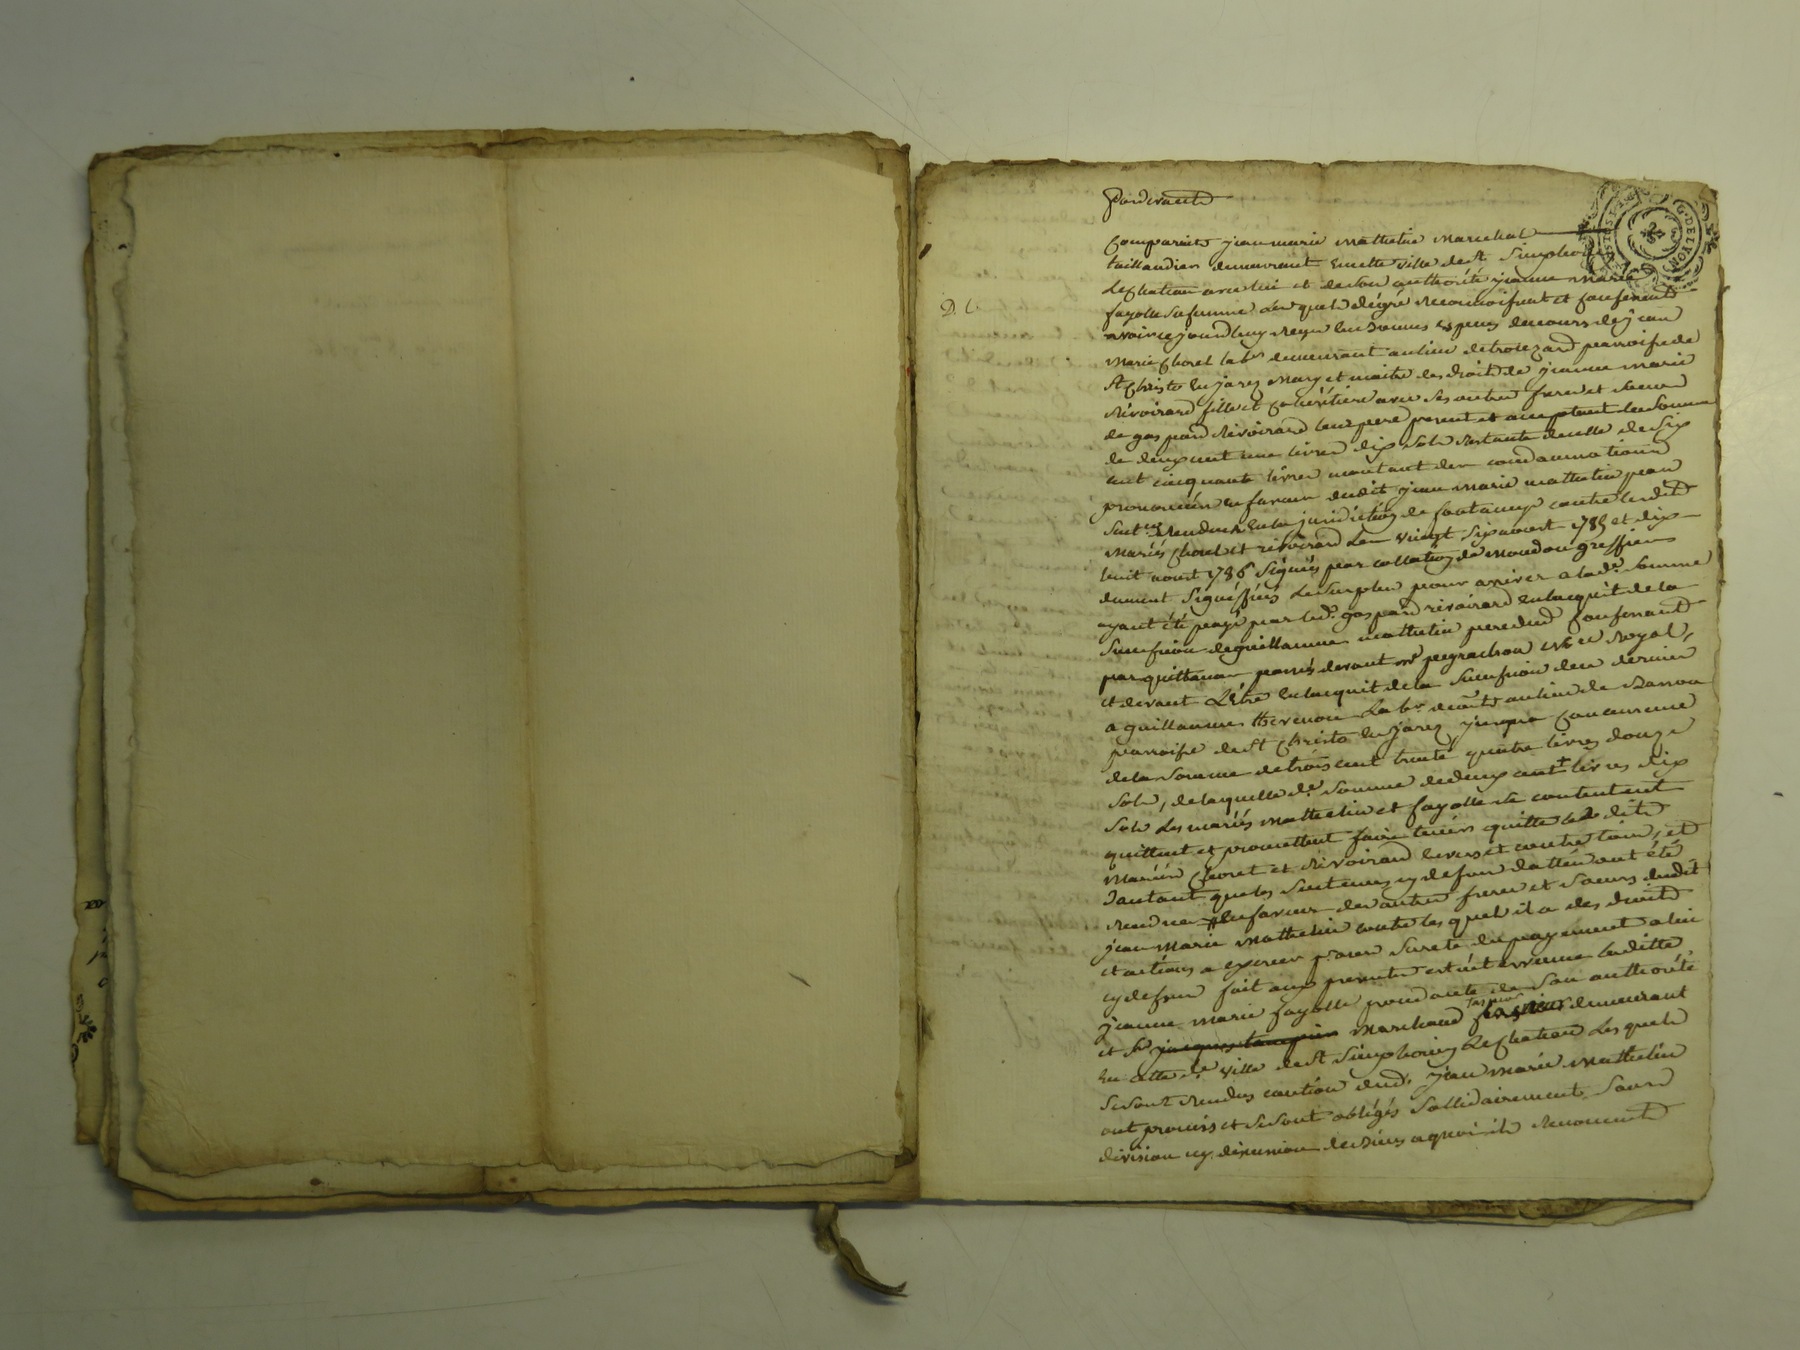 Pardevant
Comparait jean marie mathelin marechal
taillandier demeurant en cette ville de St Simphorien
Le chateau avec lui et de son authorité jeanne marie
fayolle sa femme Les quels de gré reconnoissent et confessent
D. C.
avoir ce jourdhuy reçu en bonnes especes de cours de jean
marie Choret labr demeurant au lieu de parroisse de
St Christo en jarez mary et maitre des droits de jeanne marie
rivoirard fille et cohéritiere avec ses autres freres et soeurs
de gaspard rivoirard leur pere present et acceptant la somme
de deux cent une livres dix sols restante de celle de six
cent cinquante livres montant des condamnations
prononcées en faveur dudit jean marie mathelin par
sentces rendues en la juridiction de fontaney contre lesdits
mariés Choret et rivoirard les vingt six aoust 1785 et dix
huit aoust 1786 signées par collation greffier
dument signiffiées Le surplus pour arriver a lade somme
ayant été payé par led. gaspard rivoirard en lacquit de la
succession de guillaume mathelin pere dud confessant
par quittances passés devant me peyrachon nre royal,
et devant L'être en lacquit de la succession de ce dernier
a guillaume labr demt au lieu de
parroisse de St Christo en jarez, jusqua concurrence
de la somme de trois cent trente quatre livres douze
sols, de laquelle de somme de deux cent + livres dix
sols Les mariés mathelin et fayolle se contentent
quittent et promettent faire tenir quitte lesdits
mariés Choret et rivoirard envers et contre tous, et
dautant que les sentences cy dessus dattées ont été
rendues en faveur des autres freres et soeurs dudit
jean marie mathelin contre les quels il a des droits
et actions a exercer pour sureté du payement a lui
cy dessus fait aux presentes est intervenue laditte
jeanne marie fayolle procedante de son authorité
et Sr marchand demeurant
en cette de ville de St Simphorien Le chateau Les quels
se sont rendus caution dud. jean marie mathelin
ont promis et se sont obligés sollidairement sans
division ny discussion de biens a quoi ils renoncent